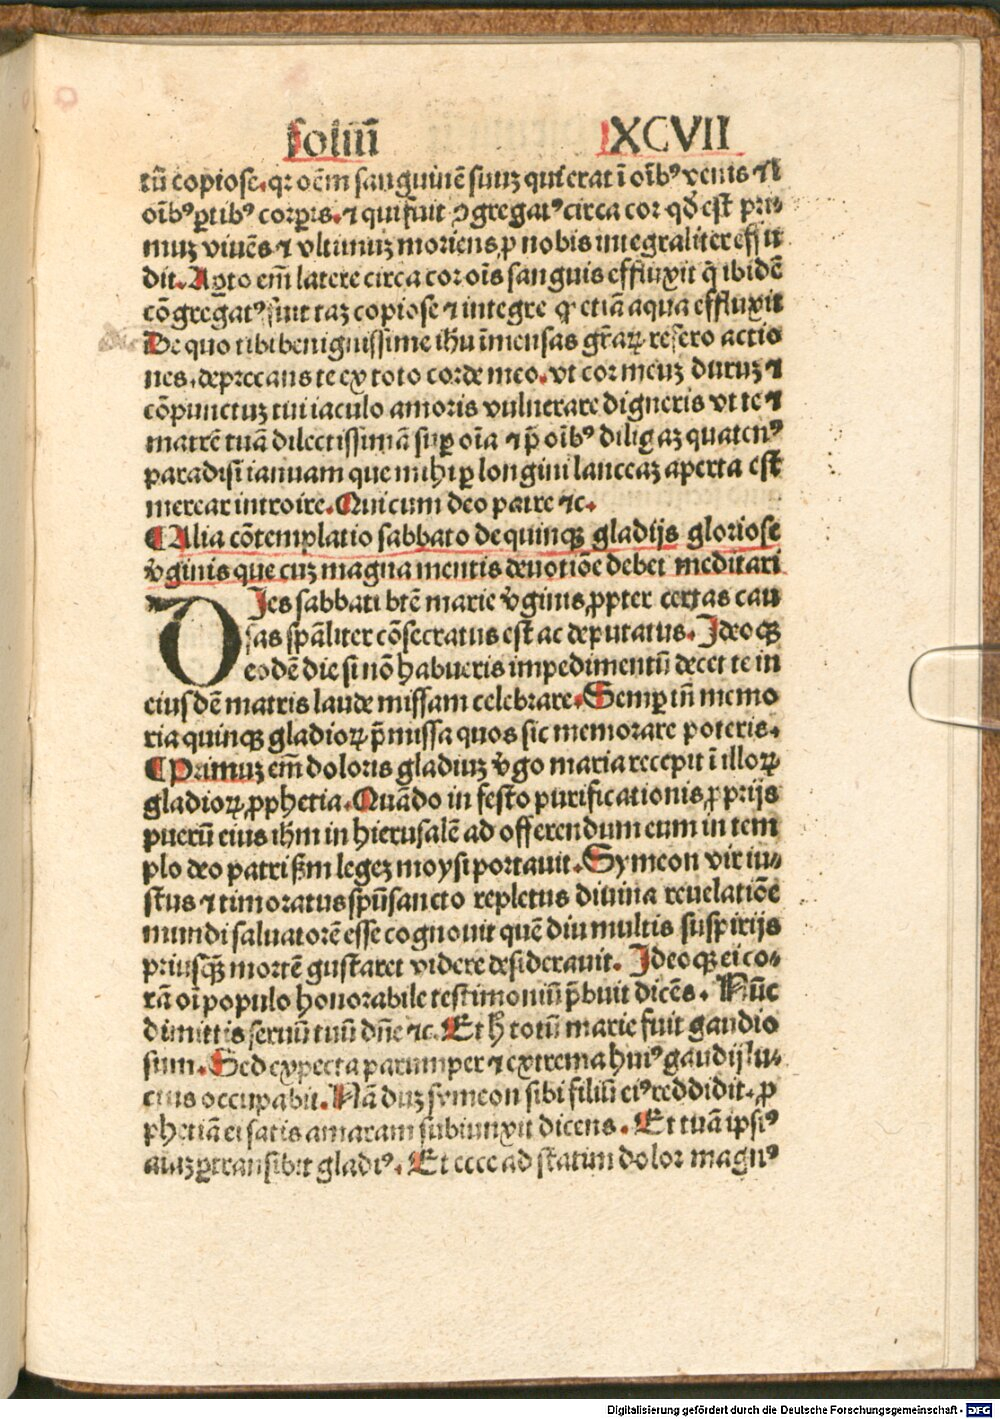 foliū LXCVII
tū copiose. qr oēm sanguinē suuʒ qui erat ī oībꝰ venis ⁊ ī
oībꝰ ꝑtibꝰ corꝑis. ⁊ qui fuit ꝯgregatꝰ circa cor qd̄ est pri⸗
muʒ viuēs ⁊ vltimuʒ moriens, ꝓ nobis integraliter effu
dit. Aꝑto em̄ latere circa cor oīs sanguis effluxit q̄ ibidē
cōgregatꝰ fuit taʒ copiose ⁊ integre ꝙ etiā aqua effluxit
De quo tibi benignissime ihu īmensas gr̄aꝝ refero actio
nes. deprecans te ex toto corde meo. vt cor meuʒ duruʒ ⁊
cōpunctuʒ tui iaculo amoris vulnerare digneris vt te ⁊
matrē tuā dilectissimā suꝑ oīa ⁊ p̄ oībꝰ diligaʒ quatenꝰ
paradisi ianuam que mihi ꝑ longini lanceaʒ aperta est
merear introire. Qui cum deo patre ⁊c.
¶ Alia cōtemplatio sabbato de quinqꝫ gladijs gloriose
v̄ginis que cuʒ magna mentis deuotiōe debet meditari
DIes sabbati btē marie v̄ginis ꝓpter certas cau
sas spāliter cōsecratus est ac deputatus. Ideoqꝫ
eodē die si nō habueris impedimentū decet te in
eiusdē matris laude missam celebrare. Semꝑ tn̄ memo
ria quinqꝫ gladioꝝ p̄missa quos sic memorare poteris.
¶ Primuʒ em̄ doloris gladiuʒ v̄go maria recepit ī illoꝝ
gladioꝝ ꝓphetia. Quādo in festo purificationis ꝓprijs
puerū eius ihm in hierusalē ad offerendum eum in tem
plo deo patri ẜm legeʒ moysi portauit. Symeon vir iu⸗
stus ⁊ timoratus spūsancto repletus diuina reuelatiōe
mundi saluatorē esse cognouit quē diu multis suspirijs
priusqꝫ̄ mortē gustaret videre desiderauit. Ideoqꝫ ei co⸗
rā oī populo honorabile testimoniū p̄buit dicēs. Nūc
dimittis seruū tuū dn̄e ⁊c. Et h̄ totū marie fuit gaudio
sum. Sed expecta parumper ⁊ extrema huiꝰ gaudij lu⸗
ctus occupabit. Nā duʒ symeon sibi filiū eiꝰ reddidit. ꝓ
phetiā ei satis amaram subiunxit dicens. Et tuā ipsiꝰ
aīaʒ ꝑtransibit gladiꝰ. Et ecce ad statim dolor magnꝰ
Digitalisierung gefördert durch die Deutsche Forschungsgemeinschaft - DFG